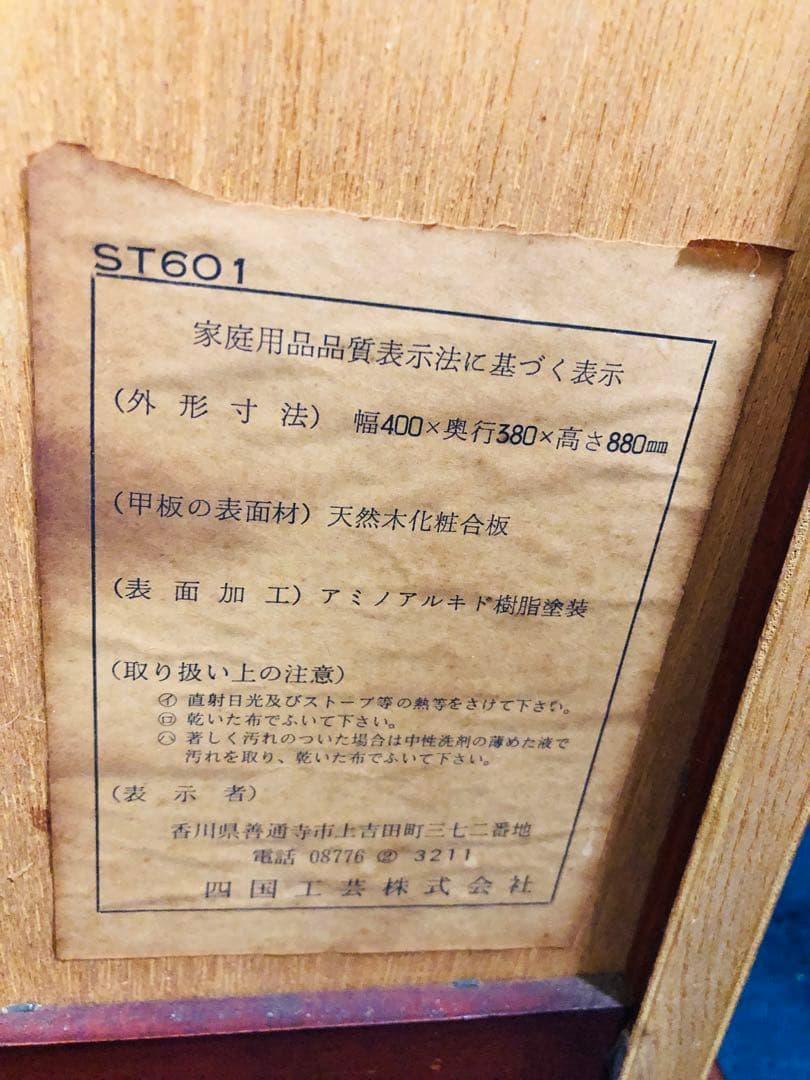 ST601
家庭用品品質表示法に基づく表示
(外形寸法) 幅400×奥行380×高さ880㎜
(甲板の表面材) 天然木化粧合板
(表面加工) アミノアルキド樹脂塗装
(取り扱い上の注意)
㋑ 直射日光及びストーブ等の熱等をさけて下さい。
㋺ 乾いた布でふいて下さい。
㋩ 著しく汚れのついた場合は中性洗剤の薄めた液で
汚れを取り、乾いた布でふいて下さい。
(表示者)
香川県善通寺市上吉田町三七二番地
電話 08776 ② 3211
四国工芸株式会社